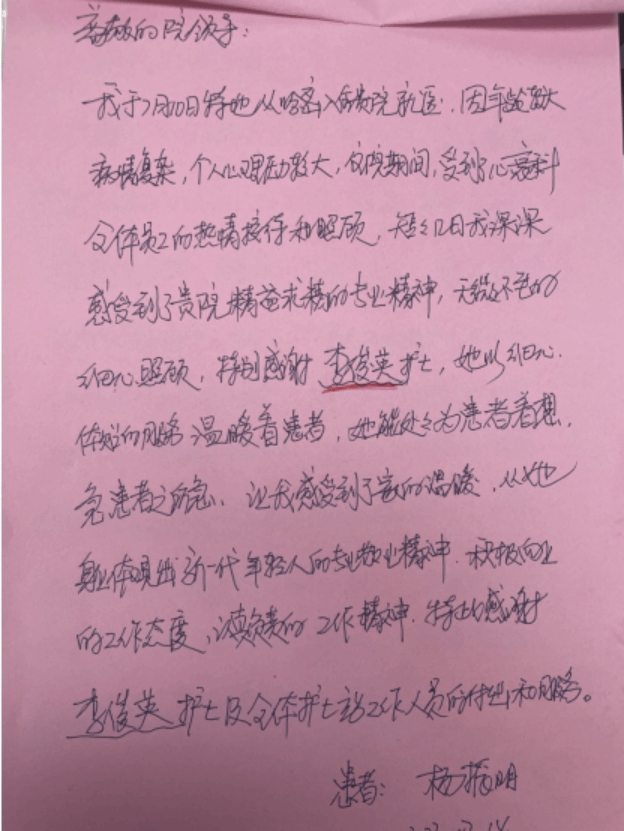 尊敬的院领导:
我于7月10日特地从哈密入贵院就医,因年龄较大
病情复杂,个人心理压力较大,住院期间,受到了心衰科
全体员工的热情接待和照顾,短短12日我深深
感受到了贵院精益求精的专业精神,无微不至的
细心照顾,特别感谢李俊英护士,她以细心.
体贴的服务温暖着患者,她能处处为患者着想,
急患者之所急,让我感受到了家的温暖,从她
身上体现出新一代年轻人的专业敬业精神.积极向上
的工作态度,认真负责的工作精神.特此感谢
李俊英护士及全体护士站工作人员的付出和服务。
患者: 杨 明